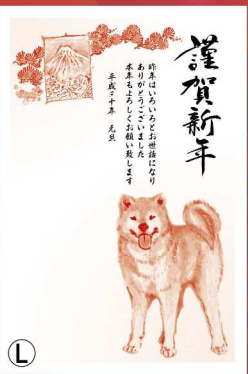 謹賀新年
昨年はいろいろとお世話になり
ありがとうございました
本年もよろしくお願い致します
平成三十年 元旦
L